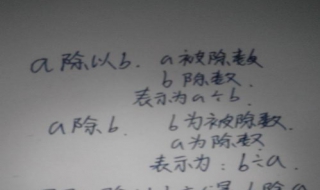 a除以b. a被除数
b除数.
表示为a÷b.
a除b. b为被除数.
a为除数.
表示为：b÷a.